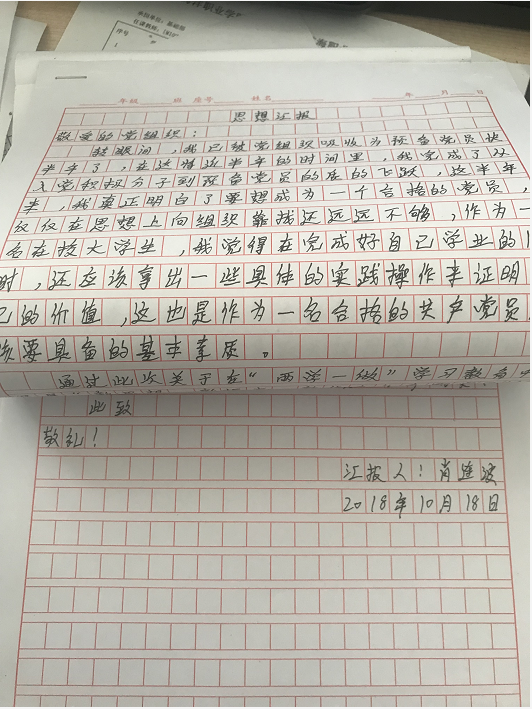 年级 班 座号 姓名 年 月 日
思想汇报
敬爱的党组织：
转眼间，我已被党组织吸收为预备党员快
半年了，在这将近半年的时间里，我完成了从
入党积极分子到预备党员的质的飞跃，这半年
来，我真正明白了要想成为一个合格的党员，
仅仅在思想上向组织靠拢还远远不够，作为一
名在校大学生，我觉得在完成好自己学业的
时，还应该拿出一些具体的实践操作来证明
己的价值，这也是作为一名合格的共产党员
该要具备的基本素质。
通过此次关于在“两学一做”学习教育
此致
敬礼！
汇报人：肖连波
2018年10月18日